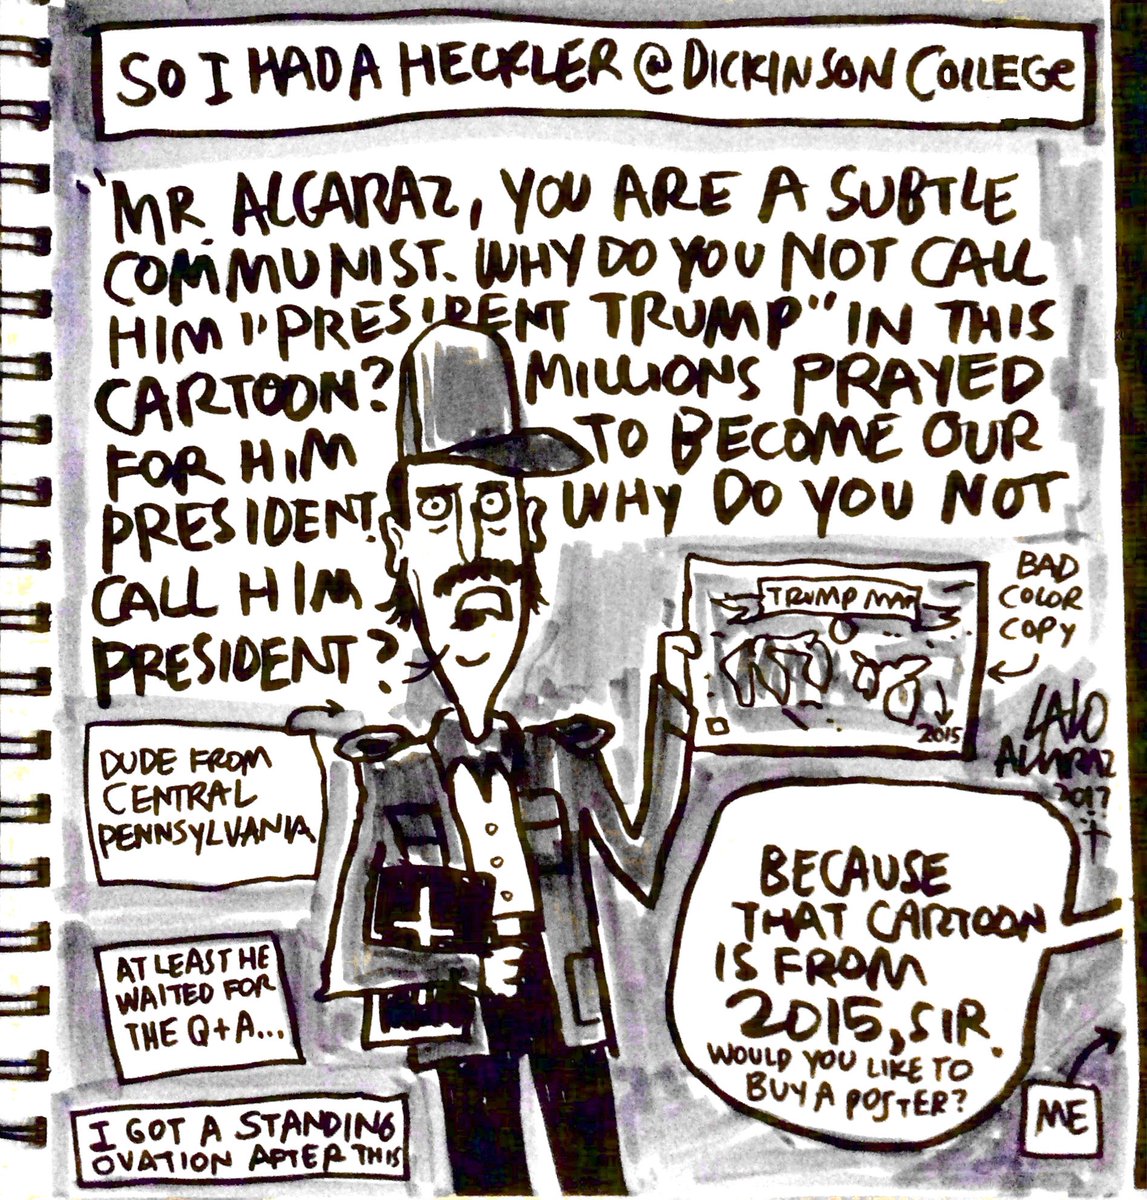 SO I HAD A HECKLER @ DICKINSON COLLEGE
"MR. ALCARAZ, YOU ARE A SUBTLE
COMMUNIST. WHY DO YOU NOT CALL
HIM "PRESIDENT TRUMP" IN THIS
CARTOON? MILLIONS PRAYED
FOR HIM TO BECOME OUR
PRESIDENT. WHY DO YOU NOT
CALL HIM
PRESIDENT?
TRUMP MAP
2015
BAD
COLOR
COPY
LALO
ALCARAZ
2017
DUDE FROM
CENTRAL
PENNSYLVANIA
AT LEAST HE
WAITED FOR
THE Q+A...
I GOT A STANDING
OVATION AFTER THIS
BECAUSE
THAT CARTOON
IS FROM
2015, SIR.
WOULD YOU LIKE TO
BUY A POSTER?
ME